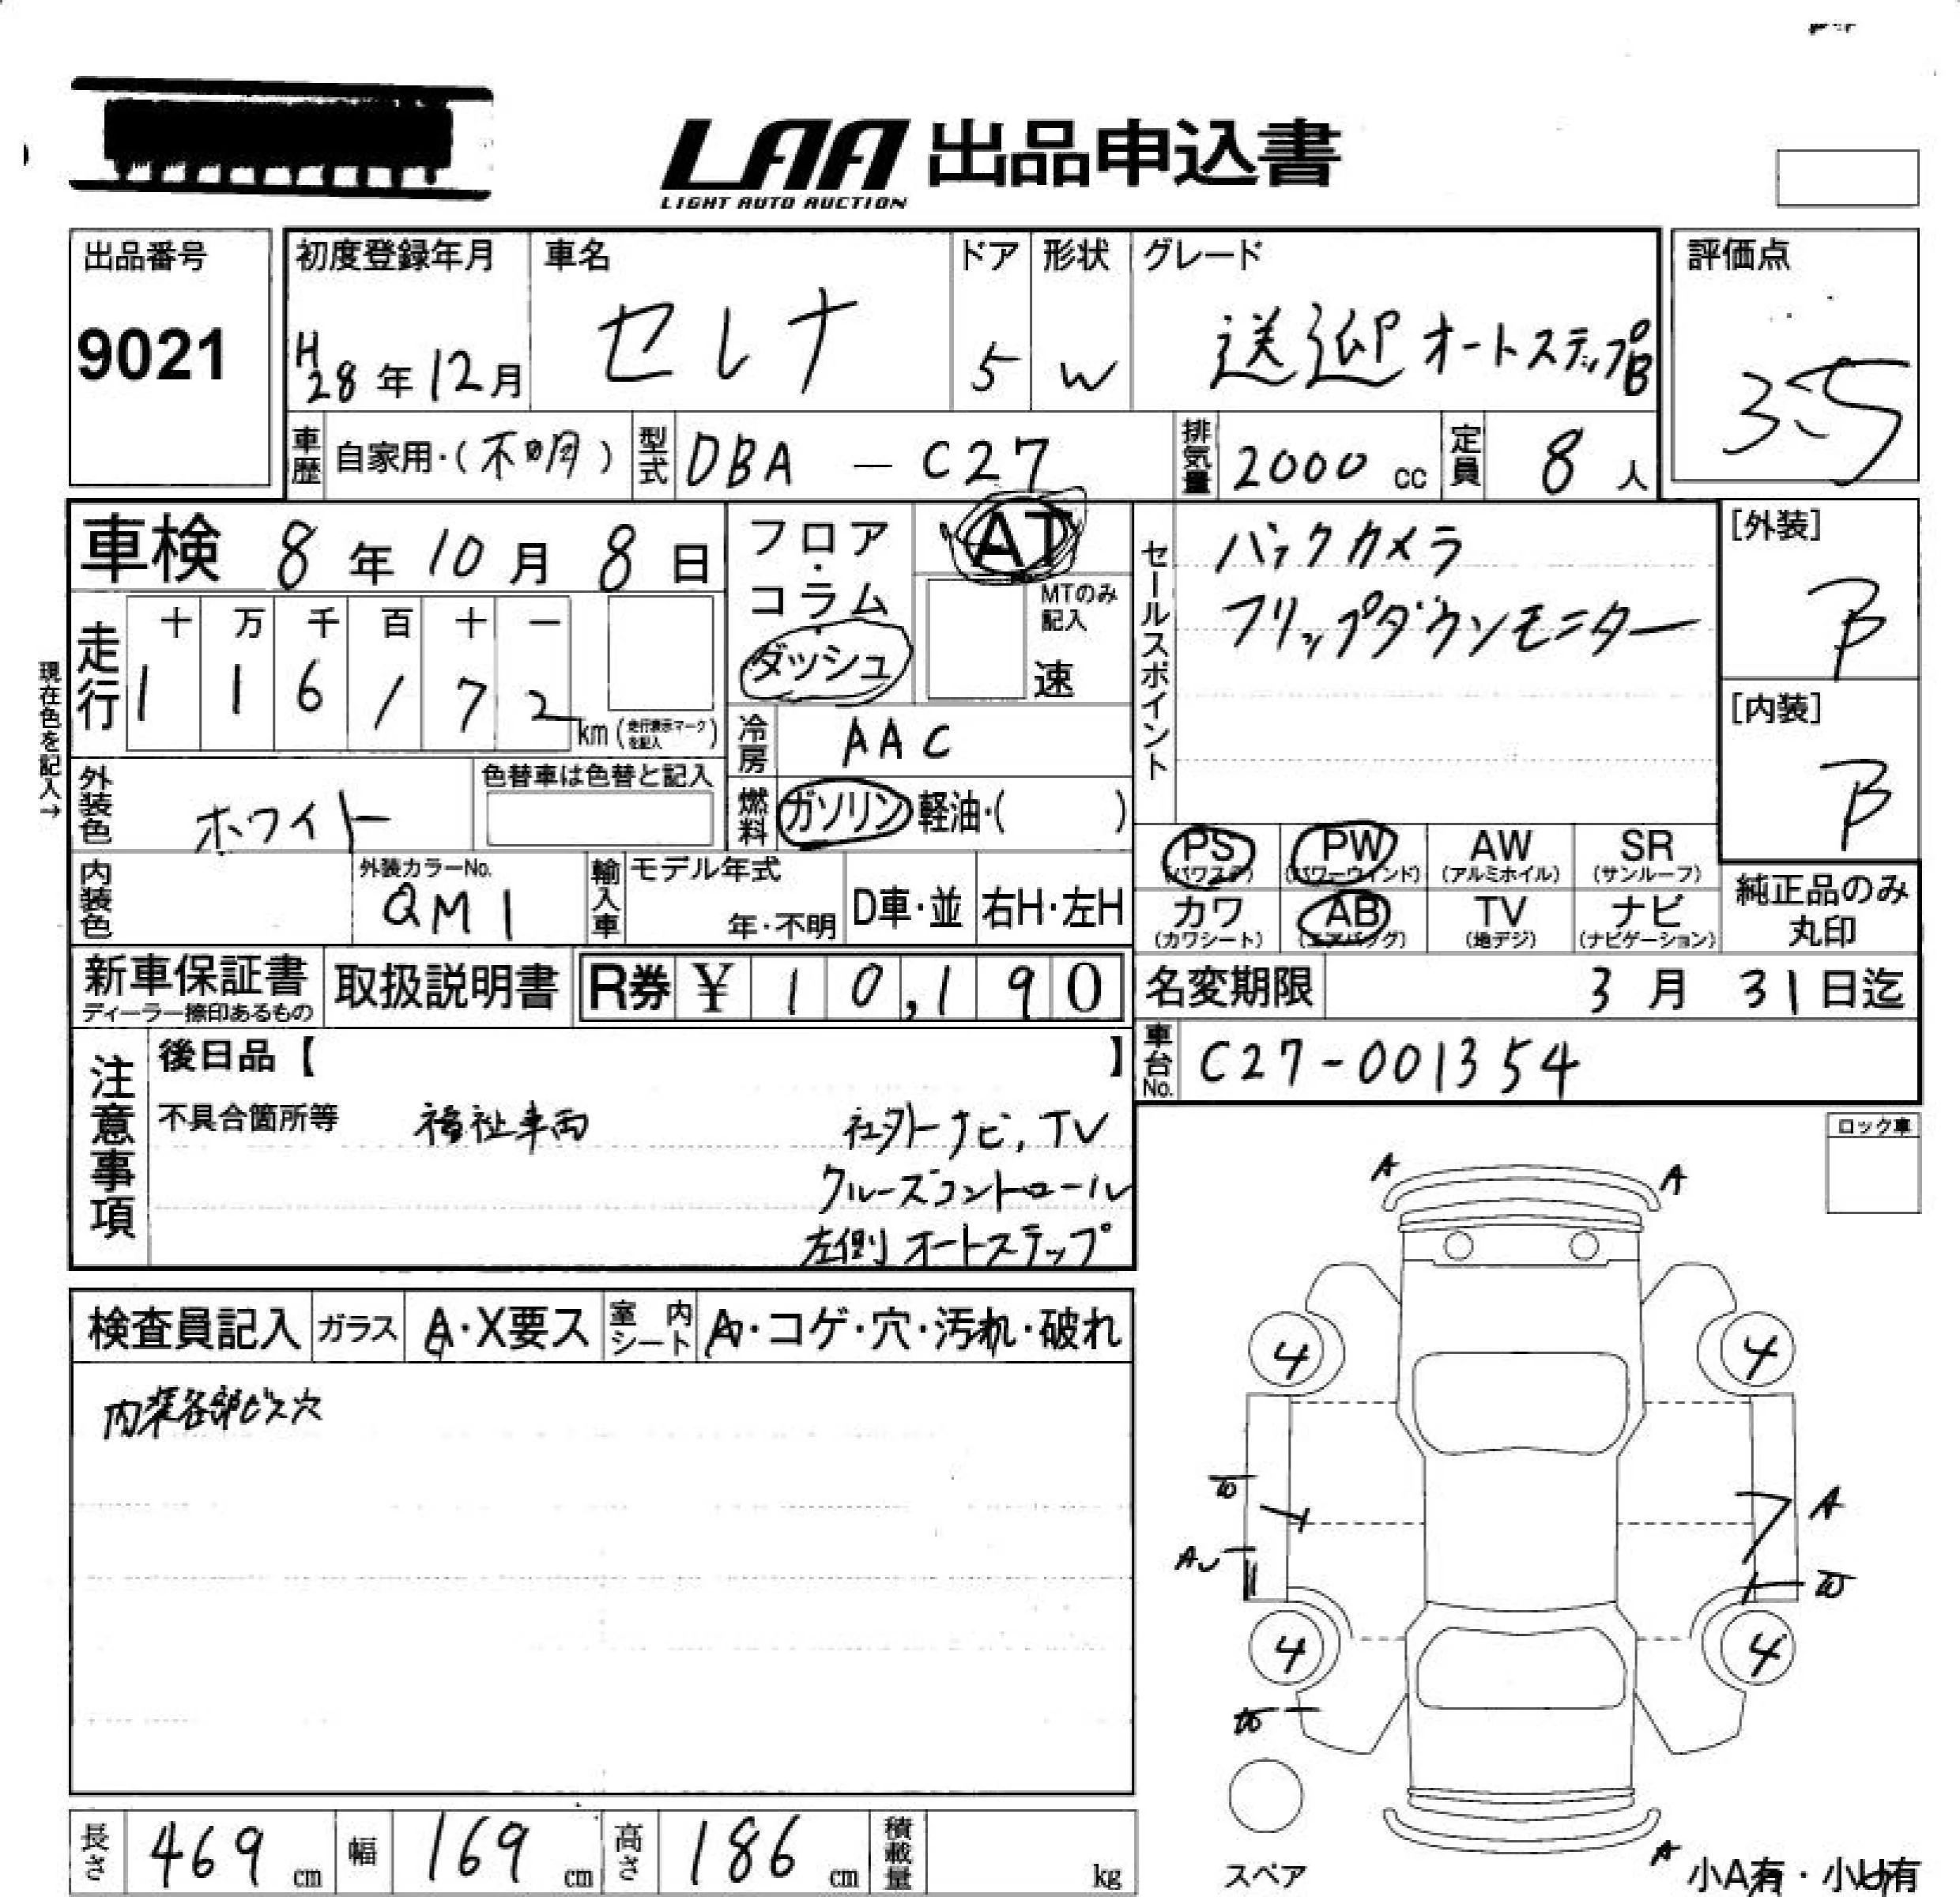 LAA 出品申込書
LIGHT AUTO AUCTION
出品番号
9021
初度登録年月
H28年12月
車名
セレナ
ドア
5
形状
W
グレード
送迎オートステップB
評価点
3.5
車歴 自家用・(不明)
型式 DBA - C27
排気量 2000 cc
定員 8 人
車検 8年10月8日
走行
十 万 千 百 十 一
1 1 6 1 7 2 km(走行表示マークを記入)
現在色を記入→
フロア・
コラム・
ダッシュ
AT
MTのみ記入
速
冷房 AAC
燃料 ガソリン 軽油・( )
セールスポイント
バックカメラ
フリップダウンモニター
[外装]
B
[内装]
B
外装色 ホワイト
色替車は色替と記入
内装色
外装カラーNo.
QM1
輸入車 モデル年式
年・不明
D車・並
右H・左H
PS (パワステ)
PW (パワーウインド)
AW (アルミホイル)
SR (サンルーフ)
カワ (カワシート)
AB (エアバッグ)
TV (地デジ)
ナビ (ナビゲーション)
純正品のみ
丸印
新車保証書
ディーラー捺印あるもの
取扱説明書
R券 ¥ 10,190
名変期限 3月31日迄
車台No. C27-001354
注意事項
後日品【 】
不具合箇所等
福祉車両
社外ナビ, TV
クルーズコントロール
左側オートステップ
ロック車
検査員記入
ガラス A・X要ス
室内シート A・コゲ・穴・汚れ・破れ
内装各部ビス穴
A A
4 4
W
A
AU
W
4 4
W
スペア
A
小A有・小U有
長さ 469 cm
幅 169 cm
高さ 186 cm
積載量 kg